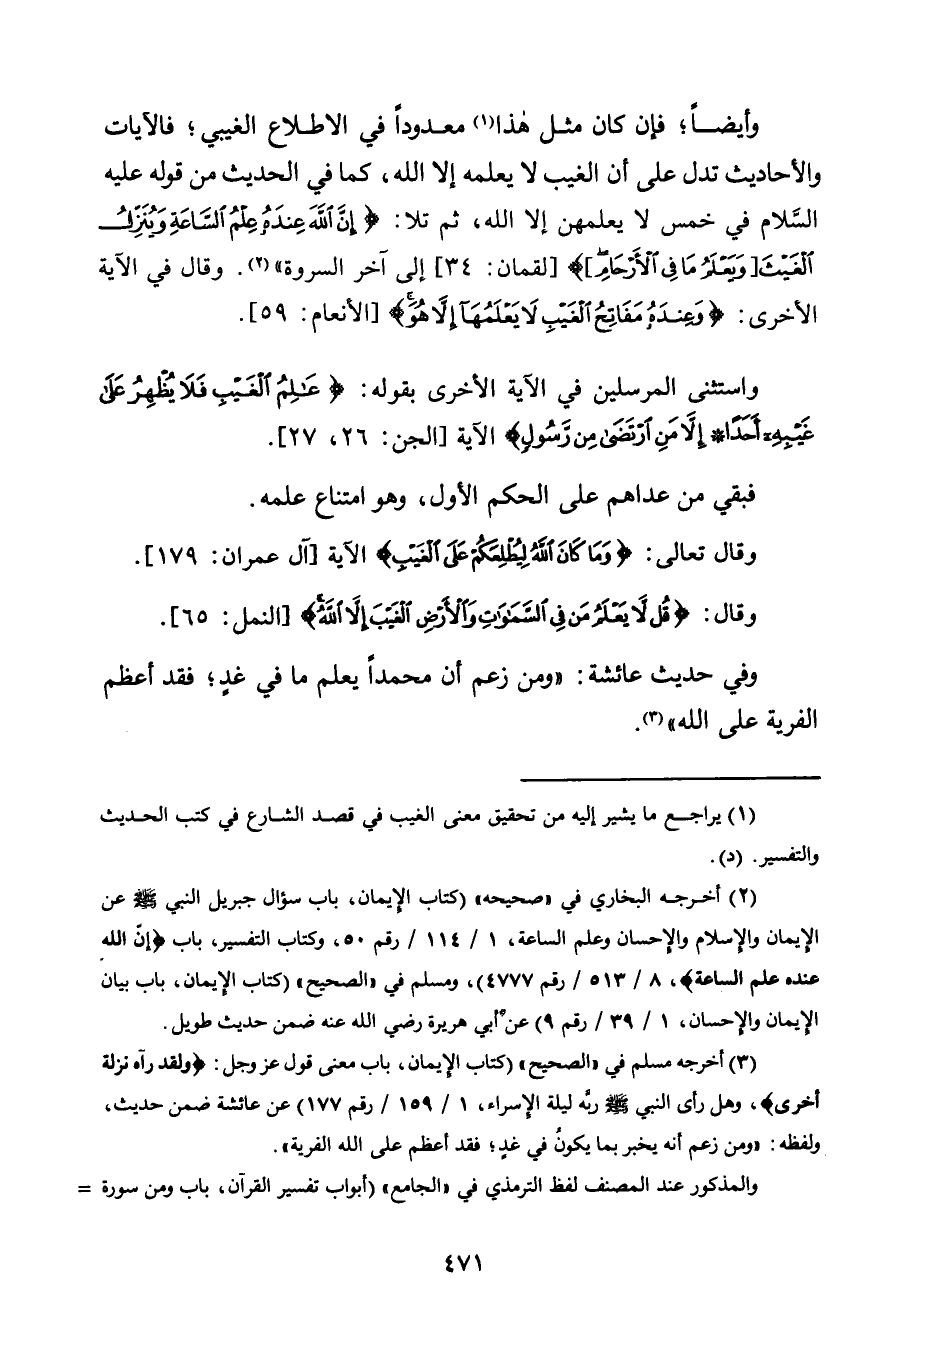 وأيضـــاً؛ فإن كان مثـل هٰذا(١) معـدوداً في الاطـلاع الغيبي؛ فالآيات
والأحاديث تدل على أن الغيب لا يعلمه إلا الله، كما في الحديث من قوله عليه
السَّلام في خمس لا يعلمهن إلا الله، ثم تلا: ﴿إِنَّ ٱللَّهَ عِندَهُۥ عِلْمُ ٱلسَّاعَةِ وَيُنَزِّلُ
ٱلْغَيْثَ [وَيَعْلَمُ مَا فِى ٱلْأَرْحَامِ]﴾ [لقمان: ٣٤] إلى آخر السروة»(٢). وقال في الآية
الأخرى: ﴿وَعِندَهُۥ مَفَاتِحُ ٱلْغَيْبِ لَا يَعْلَمُهَآ إِلَّا هُوَ﴾ [الأنعام: ٥٩].
واستثنى المرسلين في الآية الأخرى بقوله: ﴿عَـٰلِمُ ٱلْغَيْبِ فَلَا يُظْهِرُ عَلَىٰ
غَيْبِهِۦٓ أَحَدًا* إِلَّا مَنِ ٱرْتَضَىٰ مِن رَّسُولٍ﴾ الآية [الجن: ٢٦، ٢٧].
فبقي من عداهم على الحكم الأول، وهو امتناع علمه.
وقال تعالى: ﴿وَمَا كَانَ ٱللَّهُ لِيُطْلِعَكُمْ عَلَى ٱلْغَيْبِ﴾ الآية [آل عمران: ١٧٩].
وقال: ﴿قُل لَّا يَعْلَمُ مَن فِى ٱلسَّمَـٰوَٰتِ وَٱلْأَرْضِ ٱلْغَيْبَ إِلَّا ٱللَّهُ﴾ [النمل: ٦٥].
وفي حديث عائشة: «ومن زعم أن محمداً يعلم ما في غدٍ؛ فقد أعظم
الفرية على الله»(٣).
(١) يراجـع ما يشير إليه من تحقيق معنى الغيب في قصد الشارع في كتب الحديث
والتفسير. (د).
(٢) أخرجه البخاري في «صحيحه» (كتاب الإيمان، باب سؤال جبريل النبي ﷺ عن
الإيمان والإسلام والإحسان وعلم الساعة، ١ / ١١٤ / رقم ٥٠، وكتاب التفسير، باب ﴿إنّ الله
عنده علم الساعة﴾، ٨ / ٥١٣ / رقم ٤٧٧٧)، ومسلم في «الصحيح» (كتاب الإيمان، باب بيان
الإيمان والإحسان، ١ / ٣٩ / رقم ٩) عن أبي هريرة رضي الله عنه ضمن حديث طويل.
(٣) أخرجه مسلم في «الصحيح» (كتاب الإيمان، باب معنى قول عز وجل: ﴿ولقد رآه نزلة
أخرى﴾، وهل رأى النبي ﷺ ربَّه ليلة الإسراء، ١ / ١٥٩ / رقم ١٧٧) عن عائشة ضمن حديث،
ولفظه: «ومن زعم أنه يخبر بما يكونُ في غدٍ؛ فقد أعظم على الله الفرية».
والمذكور عند المصنف لفظ الترمذي في «الجامع» (أبواب تفسير القرآن، باب ومن سورة =
٤٧١